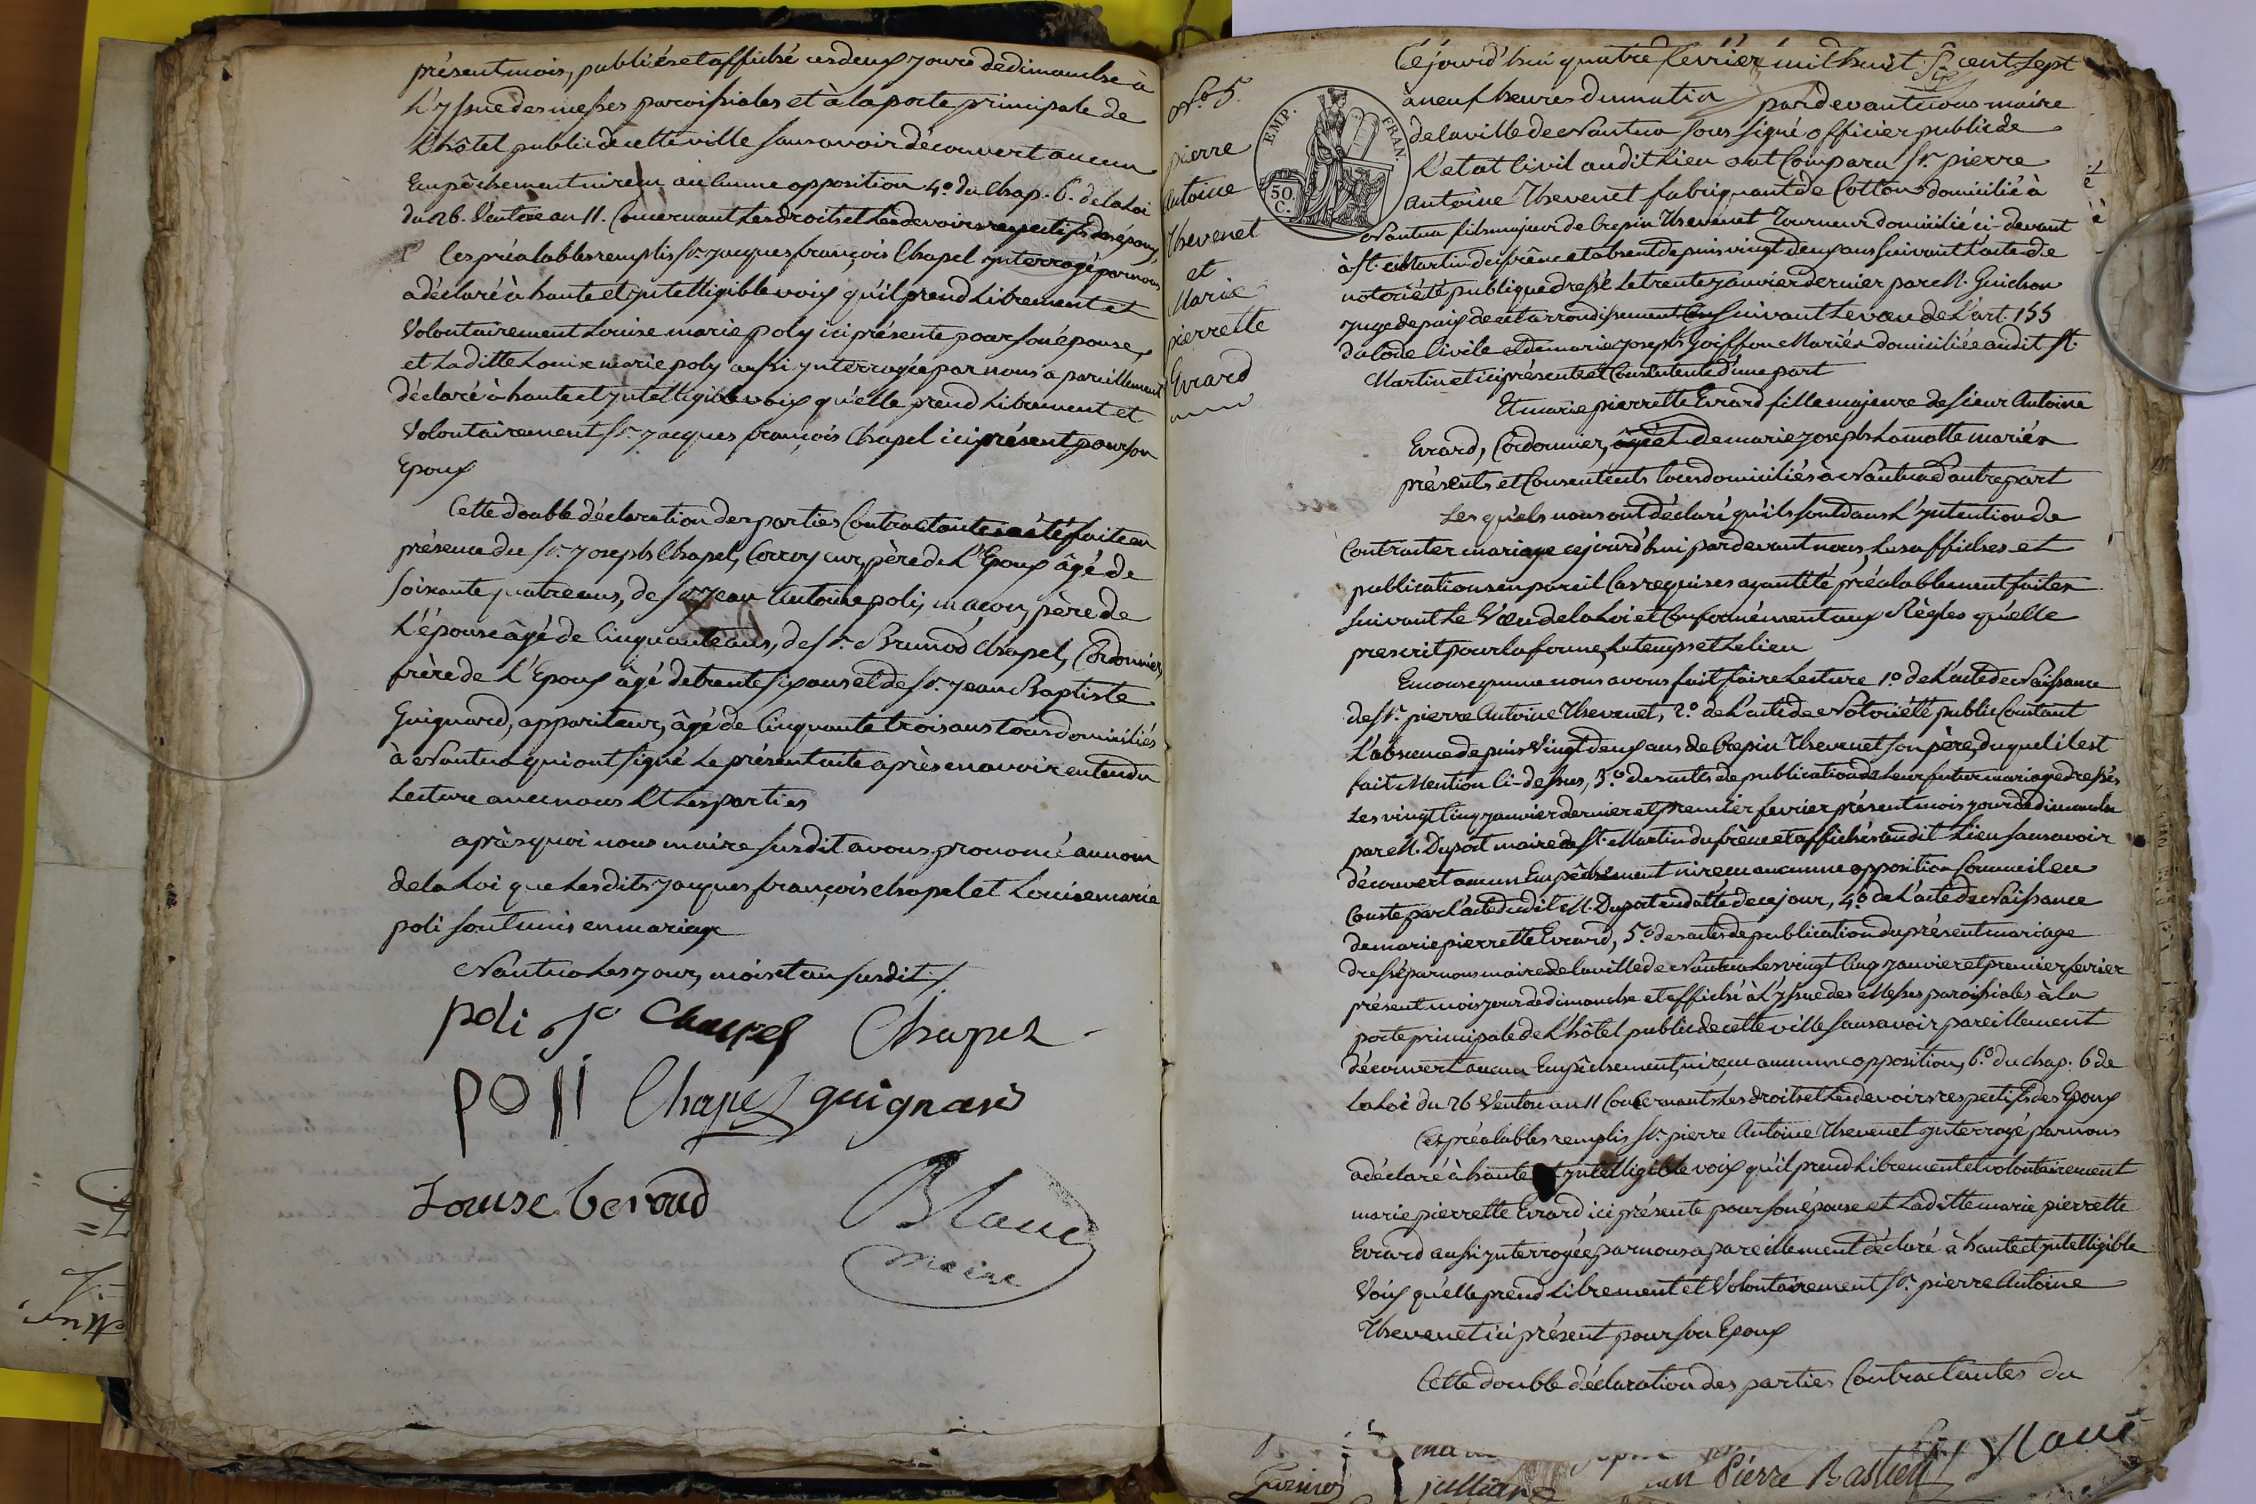 présent mois, publiés et affiché ces deux jours de dimanche à
L'yssue des messes paroissiales et à la porte principale de
L'hôtel public de cette ville sans avoir découvert aucun
Empêchement ni reçu aucunne opposition 4.o du Chap. 6. de la Loi
du 26. Ventose an 11. Concernant Les droits et Les devoirs respectifs des époux
Ces préalables remplis Sr. jacques françois Chapel ynterrogé par nous
a déclaré à haute et yntelligible voix qu'il prend Librement et
Volontairement Louise marie poly ici présente pour son épouse,
et La ditte Louise marie poly aussi ynterrogée par nous a pareillement
déclaré à haute et yntelligible voix qu'elle prend Librement et
Volontairement Sr. jacques françois Chapel ici présent pour son
Epoux
Cette double déclaration des parties Contractantes a été faite en
présence du Sr. joseph Chapel, Corroyeur, père de L'Epoux âgé de
soixante quatre ans, de Sr. jean Antoine poli, maçon, père de
L'épouse âgé de Cinquante ans, de Sr. Brunod Chapel, Cordonnier,
frère de L'Epoux âgé de trente six ans et de Sr. jean Baptiste
Guignard, appariteur, âgé de Cinquante trois ans tous domiciliés
à Nantua qui ont signé Le présent acte après en avoir entendu
Lecture avec nous et Les parties
après quoi nous maire susdit avons prononcé au nom
de la Loi que Les dits jacques françois chapel et Louise marie
poli sont unis en mariage
Nantua Les jour, mois et an susdit
poli Chapel Chapel
poli Chapel guignard
Louise beroud
Blanc
maire
No. 5.
pierre
Antoine
Thevenet
et
Marie
pierrette
Evrard
EMP. FRAN.
50 C.
Cejourd'hui quatre février mil huit cent sept
à neuf heures du matin par devant nous maire
de la ville de Nantua sous signé officier public de
L'etat Civil audit Lieu ont Comparu Sr. pierre
Antoine Thevenet fabriquant de Cotton domicilié à
Nantua fils majeur de Crepin Thevenet Tourneur domicilié ci-devant
à St. Martin du frêne et absent depuis vingt deux ans suivant L'acte de
notoriété publique dressé Le trente janvier dernier par M. Guichon
juge de paix de cet arrondissement suivant Le voeu de L'art. 155
du Code Civile et de marie joseph Goiffon Mariés domiciliée audit St.
Martin et ici présente et Consentente d'une part
Et marie pierrette Evrard fille majeure de sieur Antoine
Evrard, Cordonnier, et de marie joseph Lamotte mariés
présents et Consentents tous domiciliés à Nantua d'autre part
Les quels nous ont déclaré qu'ils sont dans L'yntention de
Contracter mariage cejourd'hui par devant nous, Les affiches et
publications en pareil Cas requises ayant été préalablement faites
suivant Le Voeu de la Loi et Conformément aux Règles qu'elle
prescrit pour la forme, Le temps et Le lieu
En conséquence nous avons fait faire Lecture 1.o de L'acte de Naissance
de Sr. pierre Antoine Thevenet, 2.o de L'acte de Notoriété public Constant
L'absence depuis Vingt deux ans de Crepin Thevenet son père, duquel il est
fait Mention Ci-dessus, 3.o des actes de publication de Leur futur mariage dressés
Les vingt Cinq janvier dernier et premier fevrier présent mois jour de dimanche
par M. Duport maire de St. Martin du frêne et affichés audit Lieu sans avoir
découvert aucun Empêchement ni reçu aucunne opposition Comme il en
Conste par L'acte dudit M. Duport en datte de ce jour, 4.o de L'acte de Naissance
de marie pierrette Evrard, 5.o des actes de publication du présent mariage
dressé par nous maire de la ville de Nantua Les vingt Cinq janvier et premier fevrier
présent mois jour de dimanche et affiché à L'yssue des Messes paroissiales à La
porte principale de L'hôtel public de cette ville sans avoir pareillement
découvert aucun Empêchement, ni reçu aucunne opposition, 6.o du chap. 6 de
La Loi du 26 Ventose an 11 Concernants Les droits et Les devoirs respectifs des Epoux
Ces préalables remplis Sr. pierre Antoine Thevenet ynterrogé par nous
a déclaré à haute et yntelligible voix qu'il prend Librement et volontairement
marie pierrette Evrard ici présente pour son épouse et La ditte marie pierrette
Evrard aussi ynterrogée par nous a pareillement déclaré à haute et yntelligible
Voix qu'elle prend Librement et Volontairement Sr. pierre Antoine
Thevenet ici présent pour son Epoux
Cette double déclaration des parties Contractantes du
Pierre Bastien